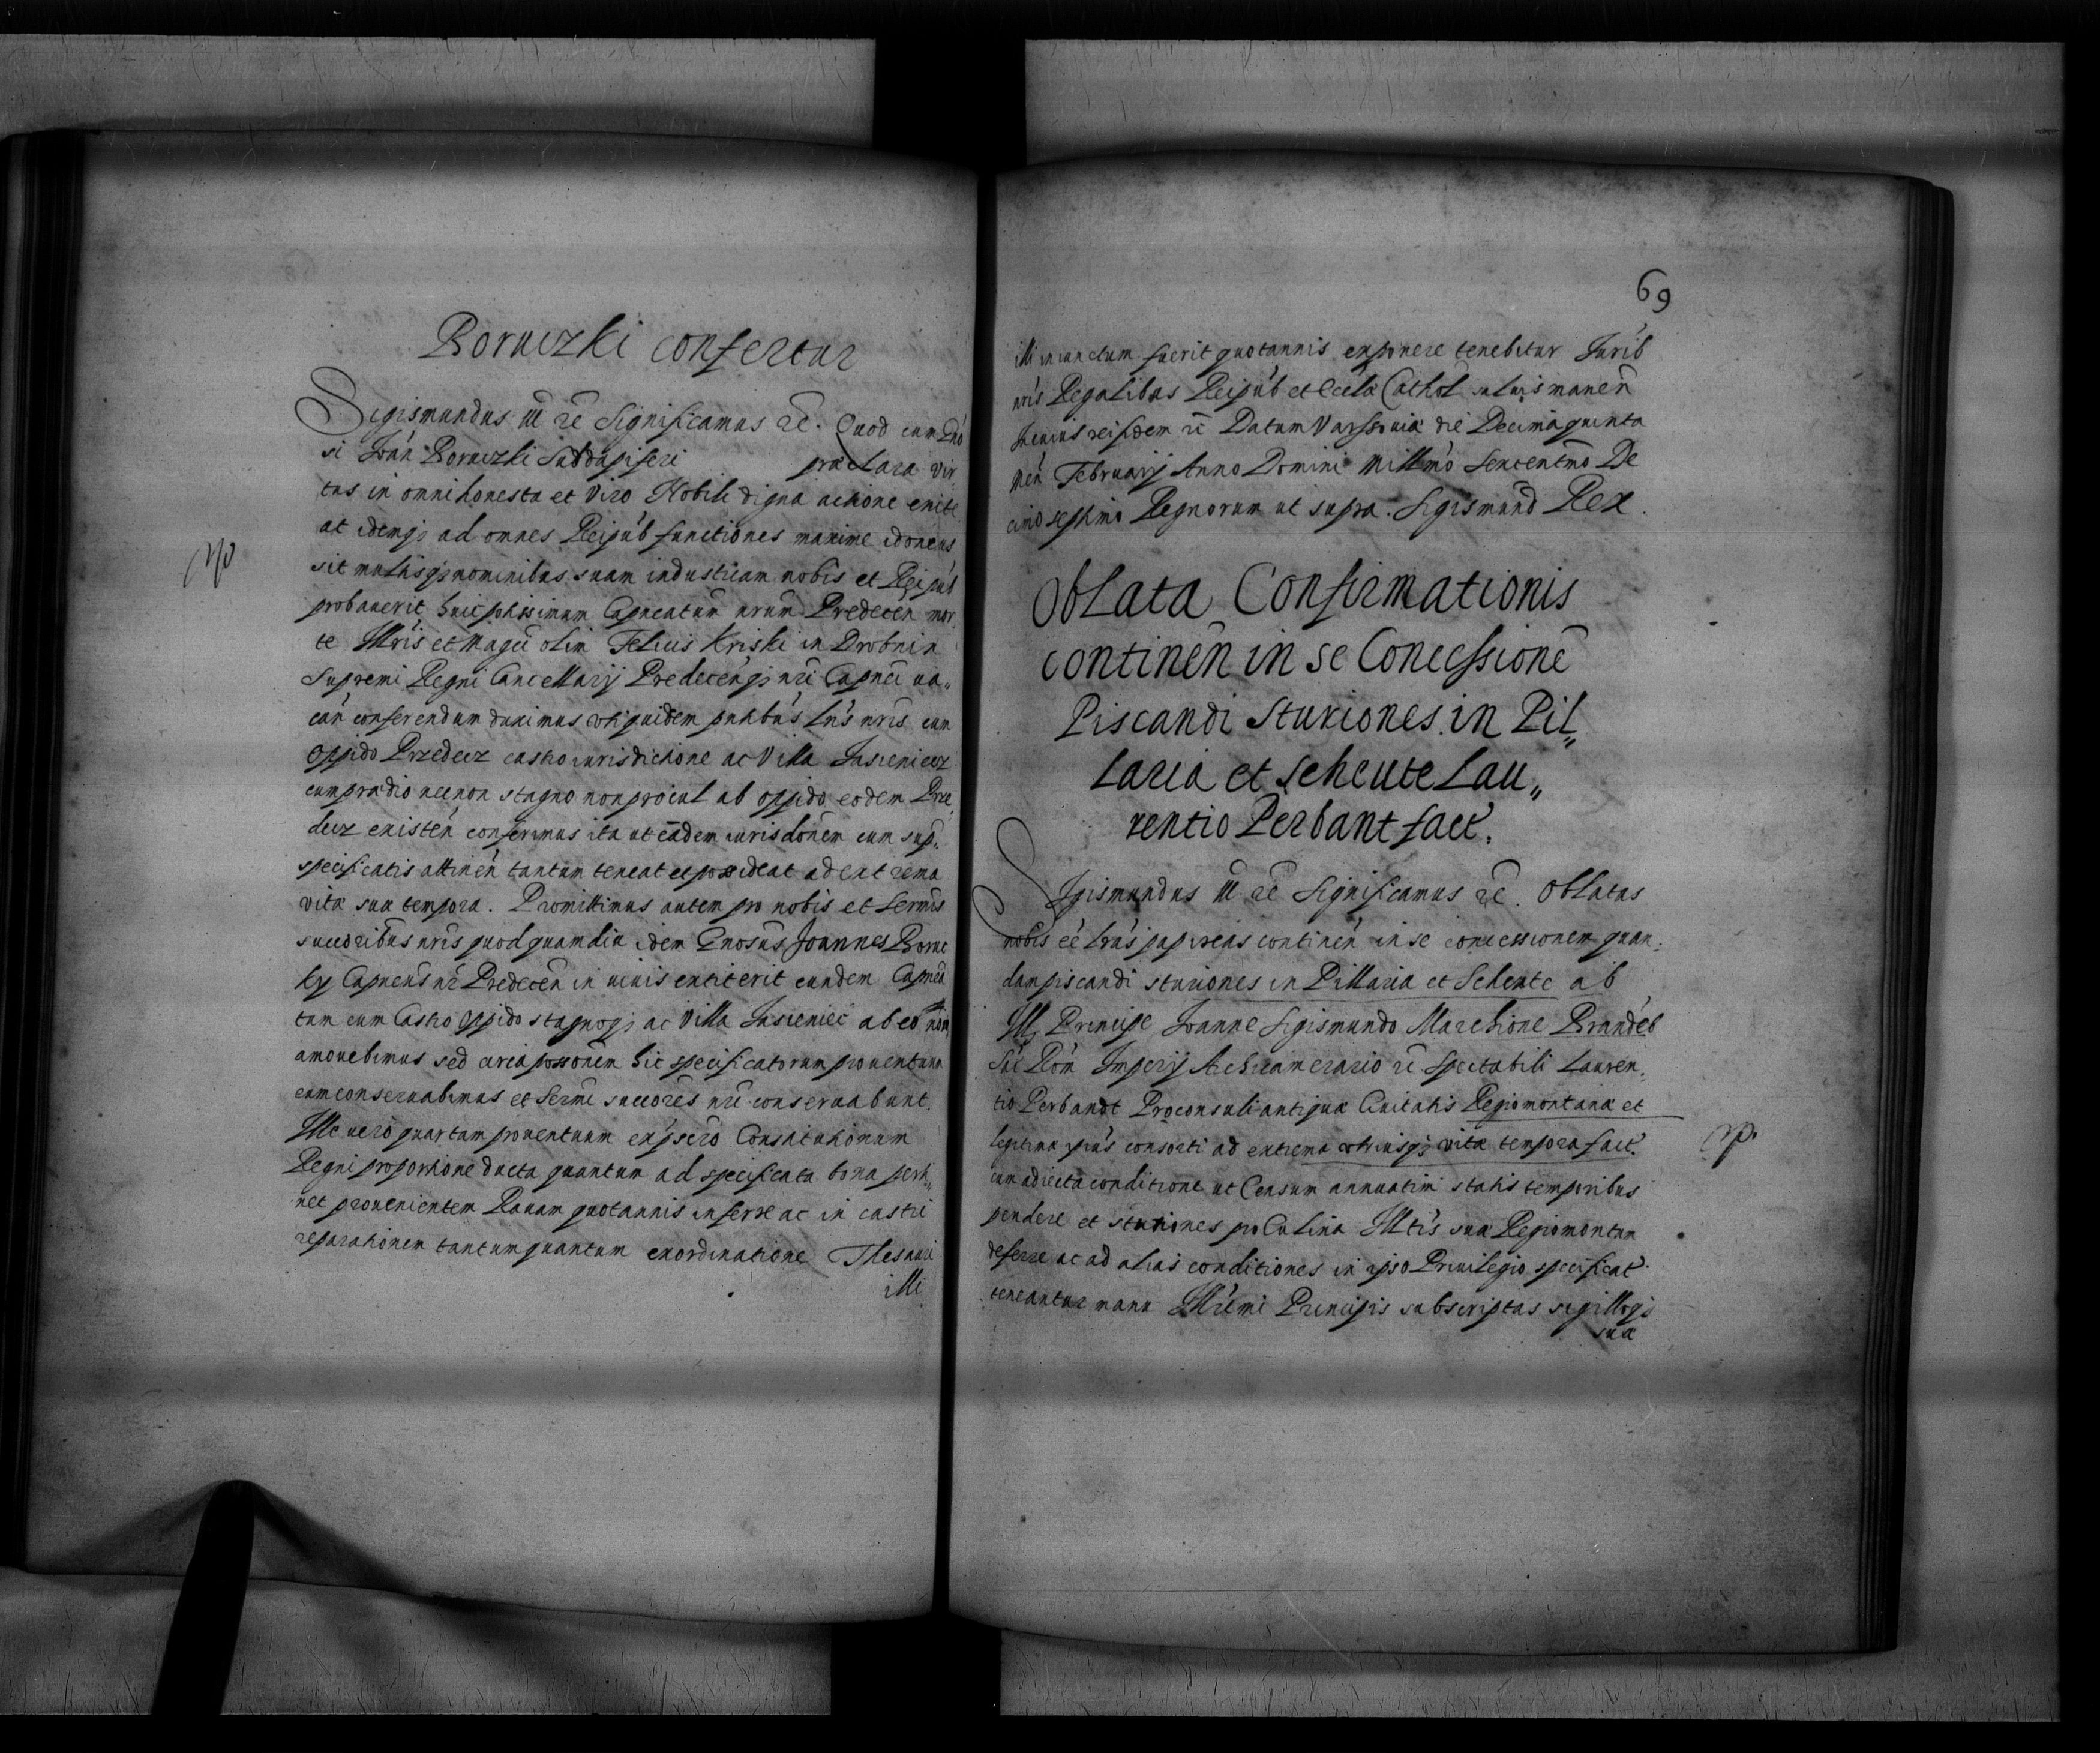 Boruczki confertur
Sigismundus III etc Significamus etc. Quod cum Gno
si Joan Boruczki Subdapiferi praeclara vir
tus in omni honesta et Viro Nobili digna actione enite
at idemq; ad omnes Reipub functiones maxime idoneus
sit multisq; nominibus suam industriam nobis et Reipub
probauerit huic potissimum Capneatum nrum Predecen mor
te Illris et Magci olim Felicis Kriski in Drobnin
Supremi Regni Cancellarij Predecenq; nri Capnei va„
can conferendum duximus uti quidem pntibus Lris nris cum
Oppido Przedecz castro iurisdictione ac Villa Jasieniecz
cum praedio necnon stagno non procul ab oppido eodem Prze
decz existen conferimus ita ut eadem iurisdonem cum sup
specificatis attinen tantum teneat et possideat ad extrema
vitae suae tempora. Promittimus autem pro nobis et Sermis
succoribus nris quod quamdiu idem Gnosus Joannes Boruc
ky Capneus nr Predecen in vivis extiterit eundem Capnea
tum cum Castro Oppido stagnoq; ac Villa Jasieniec ab eo non
amouebimus sed circa possonem hic specificatorum prouentuum
eum conseruabimus et Sermi succores nri conseruabunt.
Ille vero quartam prouentuum ex pscro Constitutionum
Regni proportione ducta quantum ad specificata bona perti„
net prouenientem Rauam quotannis inferre ac in castri
reparationem tantum quantum ex ordinatione Thesauri
illi
69
illi iniunctum fuerit quotannis exponere tenebitur Jurib
nris Regalibus Reipub et Eccla Cathol saluis manen
Incuius rei fidem etc Datum Varssouiae die Decima quinta
Men Februarij Anno Domini Millmo Sexcentmo De
cimo septimo Regnorum ut supra. Sigismund Rex.
Oblata Confirmationis
continen in se Concessione
Piscandi Sturiones in Pil„
laria et Scheute Lau„
rentio Perbant fact.
Sigismundus III etc Significamus etc. Oblatas
nobis ee Lras papireas continen in se concessionem quan„
dam piscandi sturiones in Pillaria et Scheute ab
Ill Principe Joanne Sigismundo Marchione Brandeb
Sac Rom Imperij Archicamerario etc Spectabili Lauren„
tio Perbandt Proconsuli antiquae Ciuitatis Regiomontanae et
legitima ipius consorti ad extrema utriusq; vitae tempora fact
cum adiecta conditione ut Censum annuatim statis temporibus
pendere et sturiones pro Culina Illtis suae Regiomontum
deferre ac ad alias conditiones in ipso Priuilegio specificat
teneantur manu Illrmi Principis subscriptas sigilloq;
sua